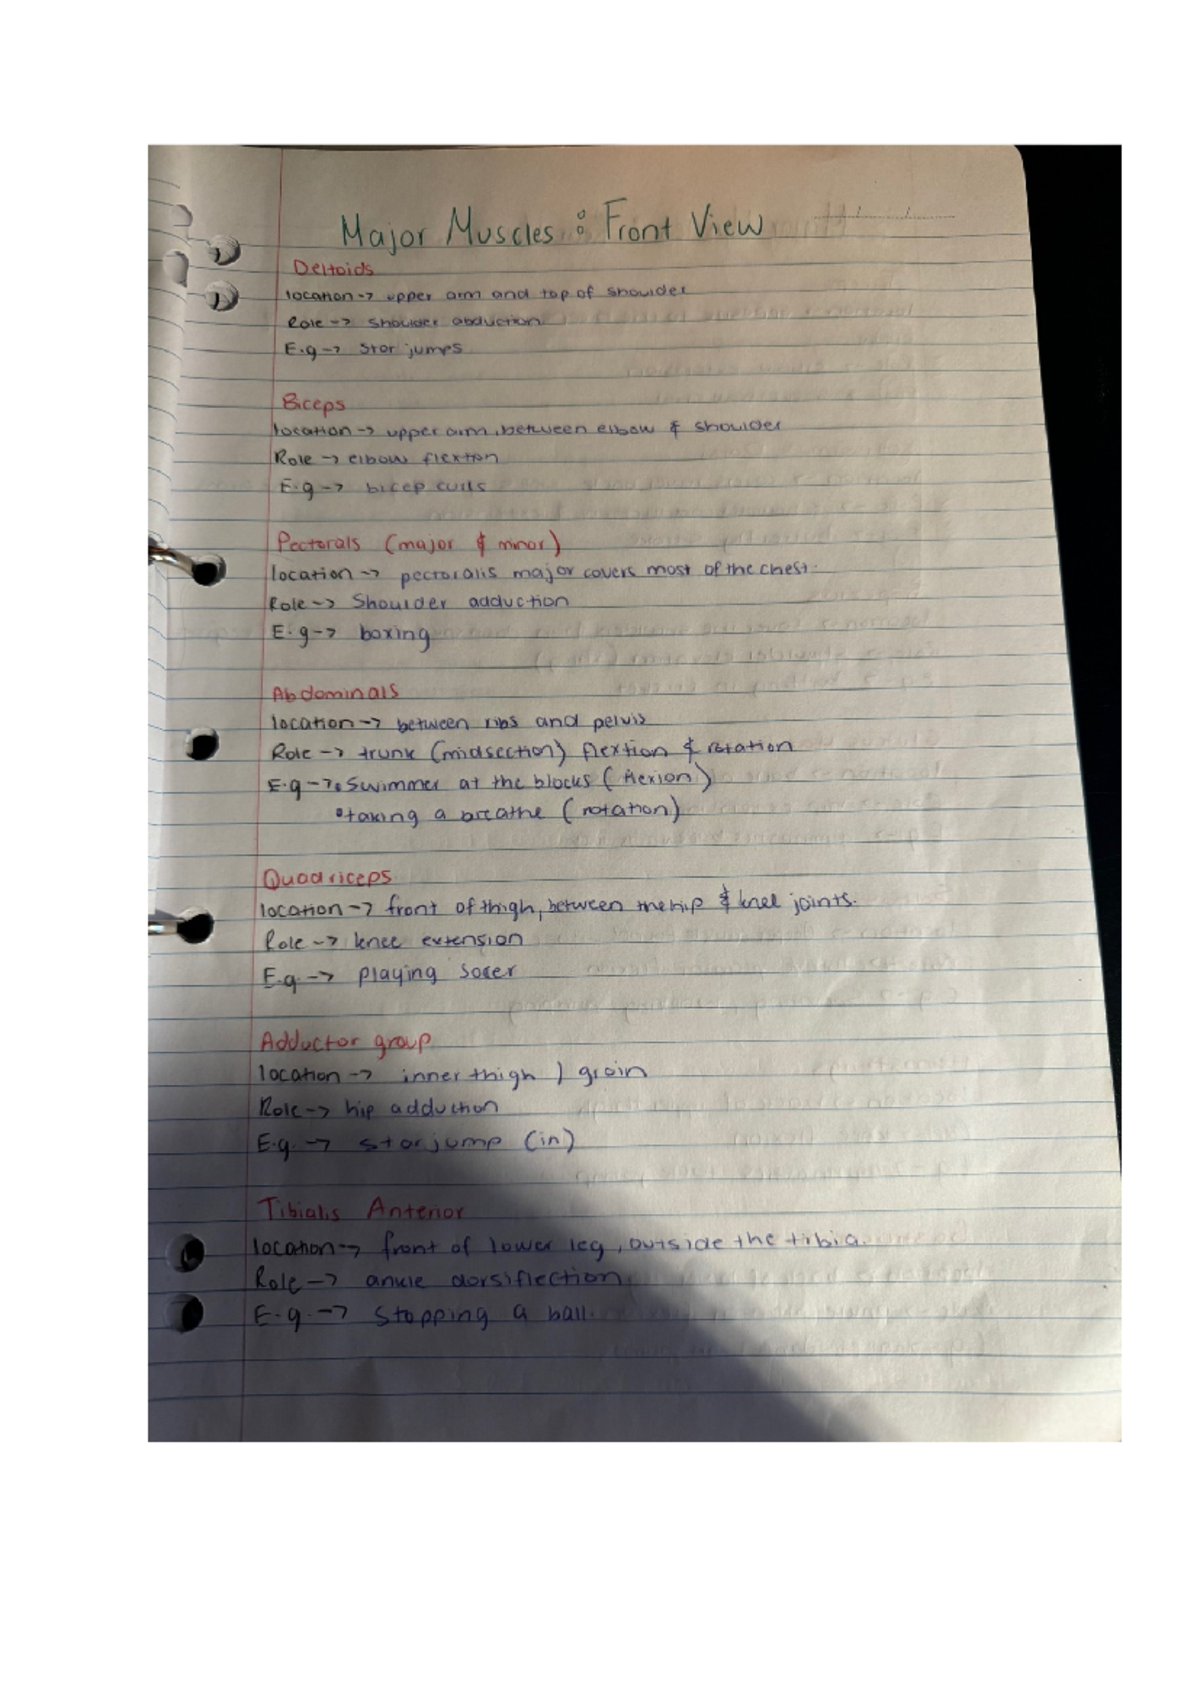 Major Muscles : Front View
Deltoids
location -> upper arm and top of shoulder
Role -> shoulder abduction
E.g -> star jumps
Biceps
location -> upper arm, between elbow & shoulder
Role -> elbow flextion
E.g -> bicep curls
Pectorals (major & minor)
location -> pectoralis major covers most of the chest.
Role -> Shoulder adduction
E.g -> boxing
Abdominals
location -> between ribs and pelvis
Role -> trunk (midsection) flextion & rotation
E.g -> • Swimmer at the blocks (flexion)
• taking a breathe (rotation)
Quadriceps
location -> front of thigh, between the hip & knee joints.
Role -> knee extension
E.g. -> playing socer
Adductor group
location -> inner thigh ) groin
Role -> hip adduction
E.g. -> star jump (in)
Tibialis Anterior
location -> front of lower leg, outside the tibia.
Role -> ankle dorsiflection
E.g. -> stopping a ball.